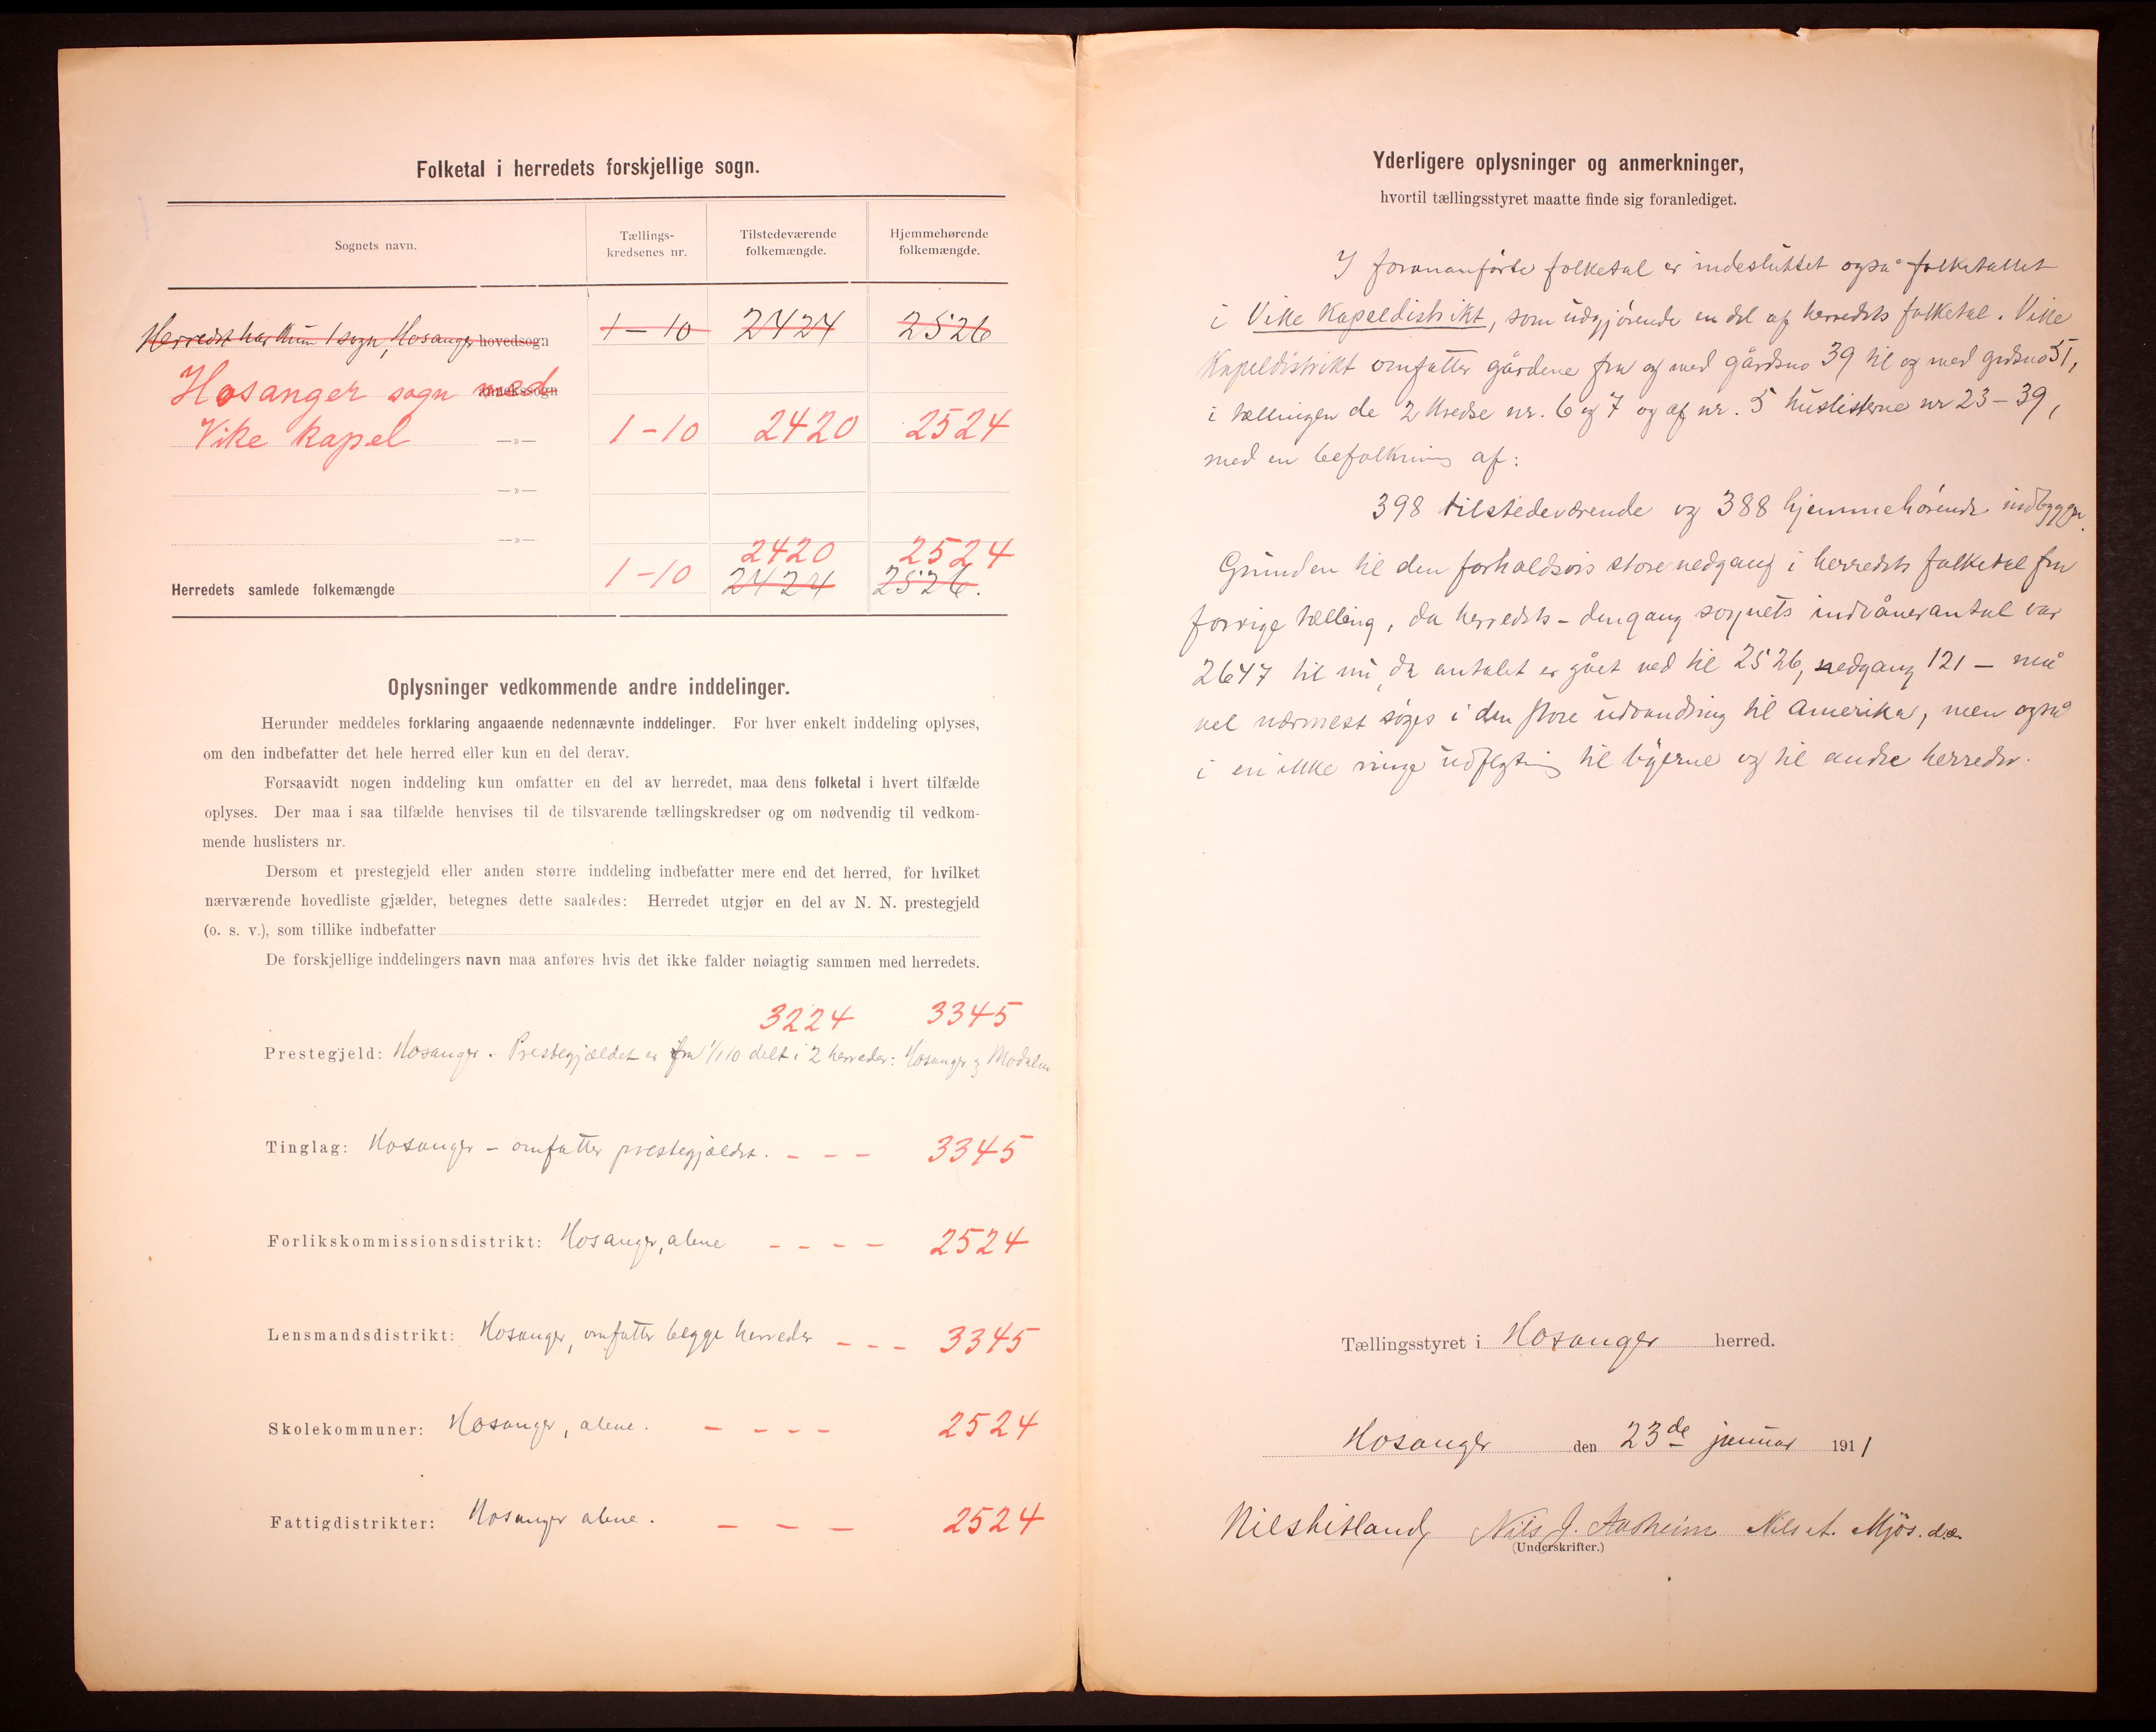 Folketal i herredets forskjellige sogn.
Sognets navn.
Tællings-
kredsenes nr.
Tilstedeværende
folkemængde.
Hjemmehørende
folkemængde.
Herredet har kun 1 sogn, Hosanger hovedsogn 1-10 2424 2526
Hosanger sogn med annekssogn
Vike kapel —»— 1-10 2420 2524
—»—
—»—
2420 2524
Herredets samlede folkemængde 1-10 2424 2526.
Oplysninger vedkommende andre inddelinger.
Herunder meddeles forklaring angaaende nedennævnte inddelinger. For hver enkelt inddeling oplyses,
om den indbefatter det hele herred eller kun en del derav.
Forsaavidt nogen inddeling kun omfatter en del av herredet, maa dens folketal i hvert tilfælde
oplyses. Der maa i saa tilfælde henvises til de tilsvarende tællingskredser og om nødvendig til vedkom-
mende huslisters nr.
Dersom et prestegjeld eller anden større inddeling indbefatter mere end det herred, for hvilket
nærværende hovedliste gjælder, betegnes dette saaledes: Herredet utgjør en del av N. N. prestegjeld
(o. s. v.), som tillike indbefatter
De forskjellige inddelingers navn maa anføres hvis det ikke falder nøiagtig sammen med herredets.
3224 3345
Prestegjeld: Hosanger. Prestegjældet er fra 1/1 10 delt i 2 herreder: Hosanger og Modalen
Tinglag: Hosanger – omfatter prestegjældet. – – – 3345
Forlikskommissionsdistrikt: Hosanger, alene – – – – 2524
Lensmandsdistrikt: Hosanger, omfatter begge herreder – – – 3345
Skolekommuner: Hosanger, alene. – – – – 2524
Fattigdistrikter: Hosanger alene. – – – 2524
Yderligere oplysninger og anmerkninger,
hvortil tællingsstyret maatte finde sig foranlediget.
I forananførte folketal er indesluttet også folketallet
i Vike Kapeldistrikt, som udgjørende en del af herredets folketal. Vike
Kapeldistrikt omfatter gårdene fra og med gårdsno 39 til og med grdsno 51,
i tællingen de 2 kredse nr. 6 og 7 og af nr. 5 huslisterne nr 23–39,
med en befolkning af:
398 tilstedeværende og 388 hjemmehørende indbygger.
Grunden til den forholdsvis store nedgang i herredets folketal fra
forrige tælling, da herredets – dengang sognets indvånerantal var
2647 til nu, da antalet er gået ned til 2526, nedgang 121 – må
vel nærmest søges i den store udvandring til Amerika, men også
i en ikke ringe udflytning til byerne og til andre herreder.
Tællingsstyret i Hosanger herred.
Hosanger den 23de januar 1911
Nils J. Aasheim Nils A. Mjös.
(Underskrifter.)